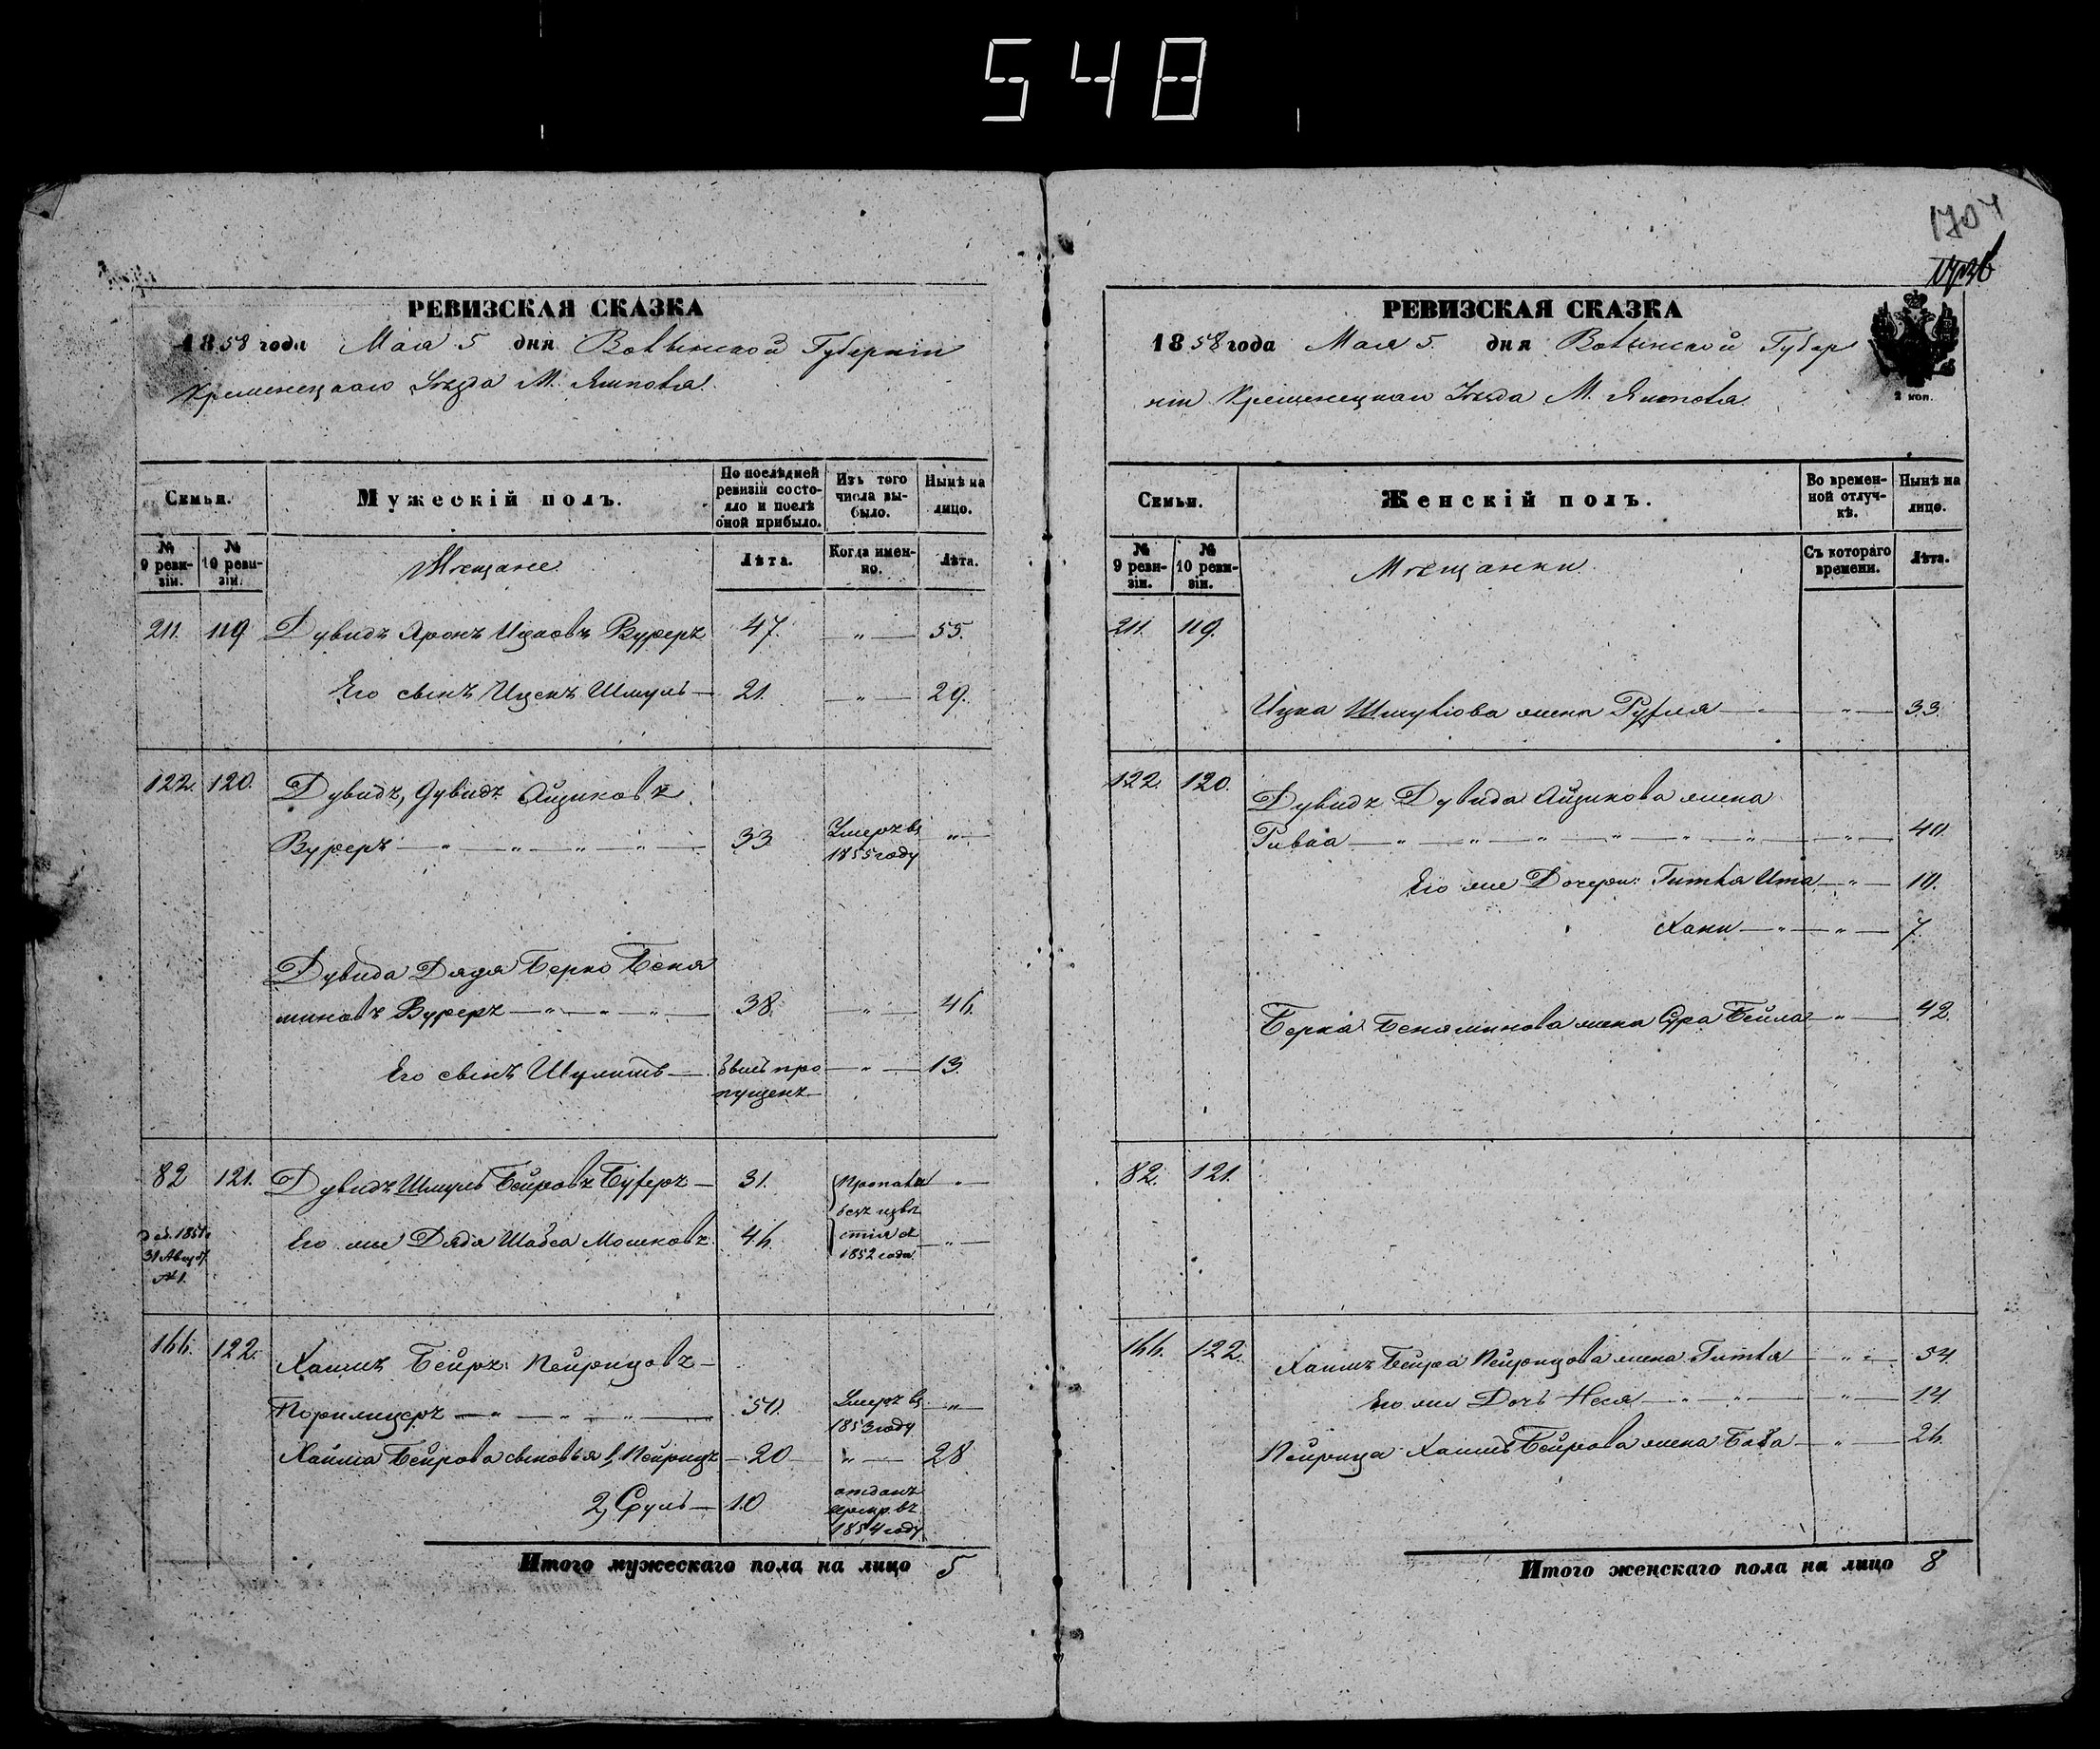 548
1704
РЕВИЗСКАЯ СКАЗКА
1858 года Мая 5 дня Волынской Губерніи
Кременецкаго Уѣзда М. Ямполя.
Семьи.
Мужескій полъ.
По послѣдней ревизіи состояло и послѣ оной прибыло.
Изъ того числа выбыло.
Нынѣ на лицо.
№ 9 ревизіи.
№ 10 ревизіи.
Мѣщане.
Лѣта.
Когда именно.
Лѣта.
211. 119 Дувидъ Аронъ Ицковъ Вуферъ 47. — " — 55.
Его сынъ Иценъ Шмуль — 21. — " — 29.
122. 120. Дувидъ, Дувидъ Айзиковъ
Вуферъ — " — " — " — " — 33 Умеръ въ 1855 году — " —
Дувида Дядя Берко Беня
миновъ Вуферъ — " — " — " — 38. — " — 46.
Его сынъ Шулимъ — Былъ пропущенъ — " — 13.
82 121. Дувидъ Шмуль Бейровъ Буферъ — 31. Пропалъ — " —
безъ извѣ
Его же Дядя Шабса Мошковъ. 46. стія съ — " —
1852 года
31 Авгус.
№ 1.
166. 122. Хаимъ Бейръ Пейрицовъ —
Порилицеръ — " — " — " — 50. Умеръ въ 1853 году — " —
Хаима Бейрова сыновья 1, Пейрицъ — 20 — " — 28
2, Сруль — 10 отданъ рекр. въ 1854 году
Итого мужескаго пола на лицо 5
РЕВИЗСКАЯ СКАЗКА
1858 года Мая 5. дня Волынской Губер
ніи Кременецкаго Уѣзда М. Ямполя.
2 коп.
Семьи.
Женскій полъ.
Во временной отлучкѣ.
Нынѣ на лицо.
№ 9 ревизіи.
№ 10 ревизіи.
Мѣщанки.
Съ котораго времени.
Лѣта.
211. 119.
Ицка Шмулiова жена Рухля — " — 33.
122. 120. Дувидъ Дувида Айзикова жена
Ривка — " — " — " — " — " — " — " — 40.
Его же Дочери: Гитля Ита — " — 10.
Хани — " — " — 7.
Берка Беняминова жена Сура Бейла — " — 42.
82. 121.
166. 122. Хаимъ Бейра Пейрицова жена Гитля — " — 54.
Его же Дочь Неся — " — " — " — 14.
Пейрица Хаимъ Бейрова жена Баба — " — 26.
Итого женскаго пола на лицо 8